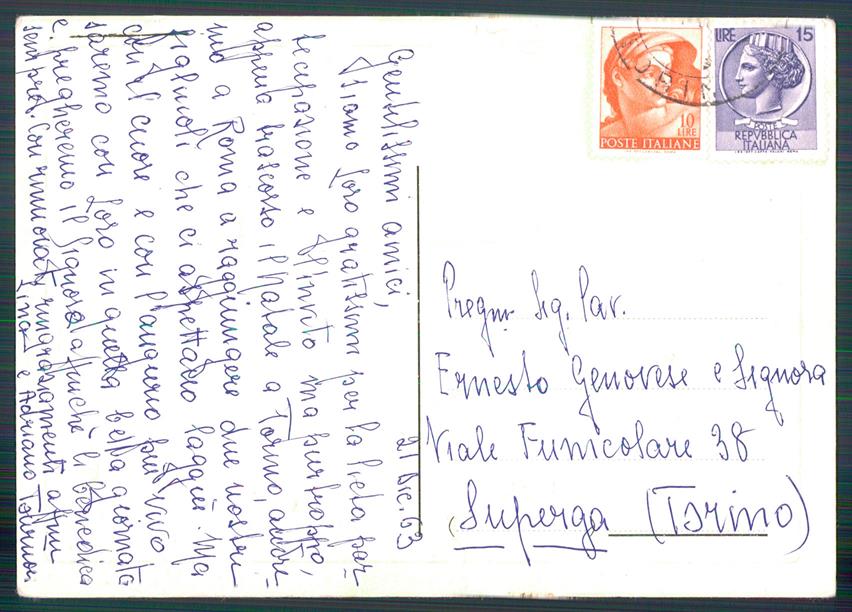 21 Dic. 63
Gentilissimi amici,
siamo loro gratissimi per la lieta par
tecipazione e l'invito ma purtroppo,
appena trascorso il Natale a Torino, andre
mo a Roma a raggiungere due nostri
figliuoli che ci aspettano laggiù. Ma
con il cuore e con l'augurio più vivo
saremo con loro in quella bella giornata
e pregheremo il Signore affinchè li benedica
sempre. Con rinnovati ringraziamenti affmi
Lina e Adriano
LIRE 15
POSTE
REPVBBLICA
ITALIANA
10
LIRE
POSTE ITALIANE
Pregmo Sig. Cav.
Ernesto Genovese e Signora
Viale Funicolare 38
Superga (Torino)